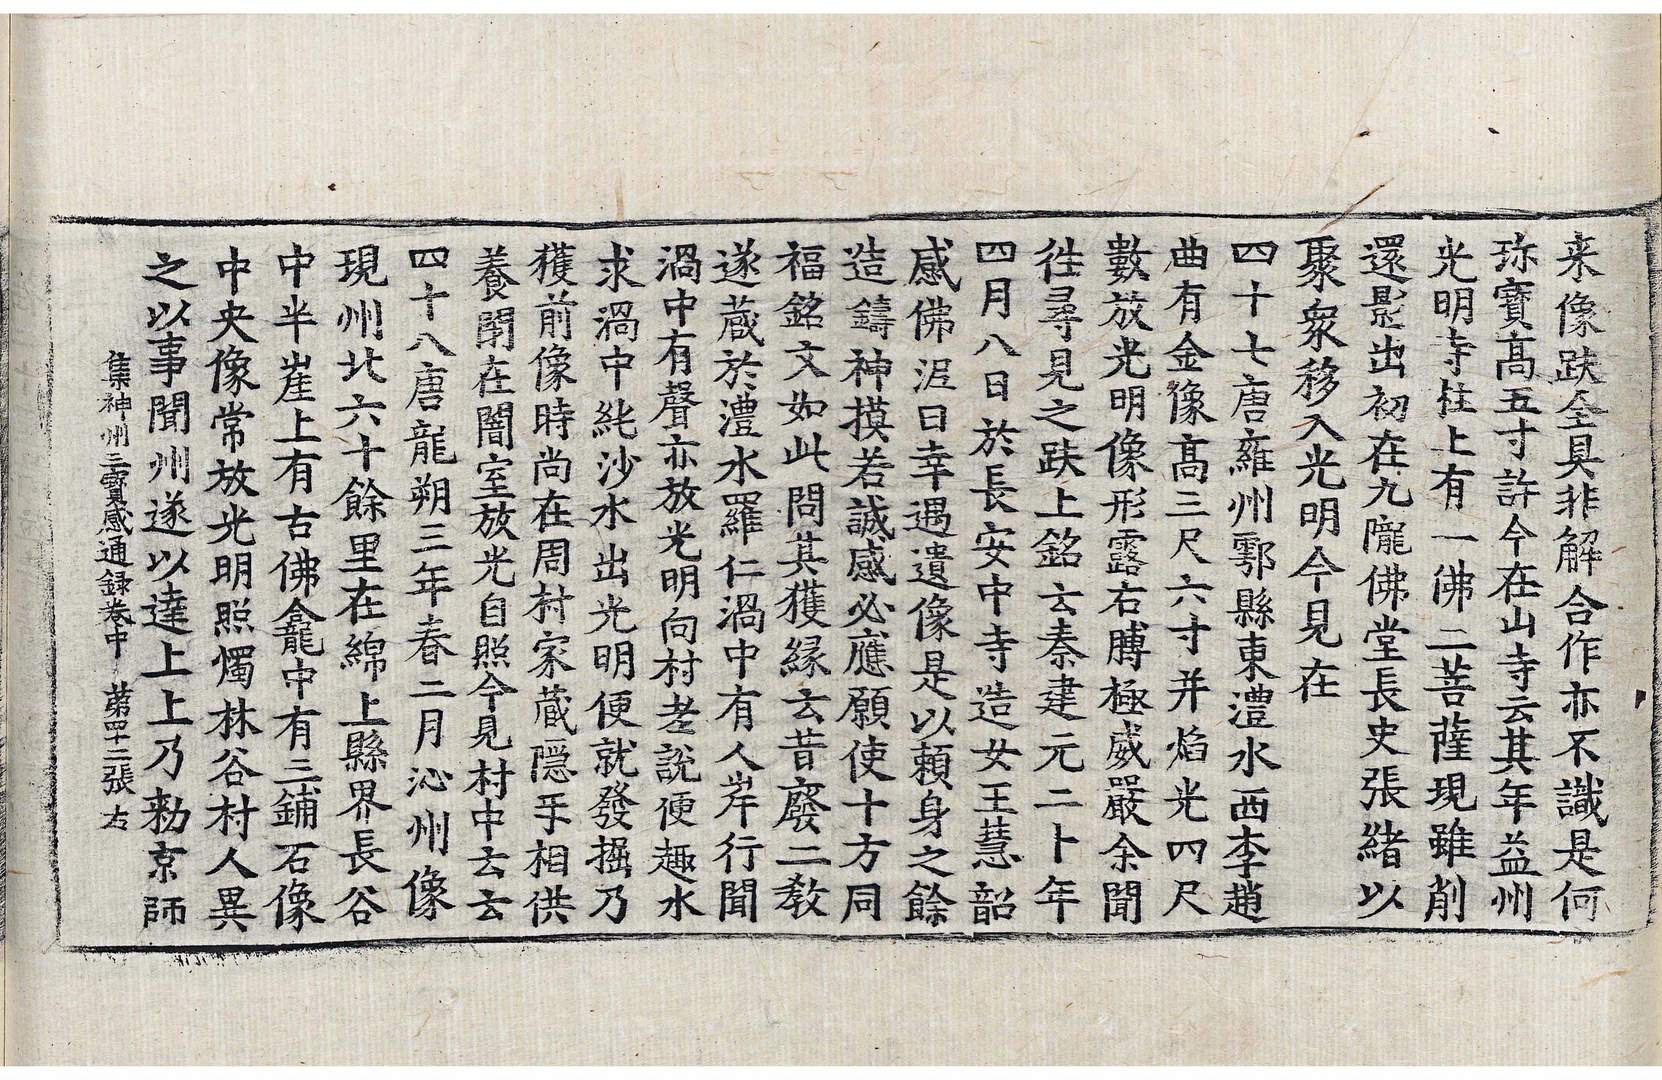 来像趺全具非解合作亦不識是何
珎寳髙五寸許今在山寺云其年益州
光明寺柱上有一佛二菩薩現雖削
還影出初在九隴佛堂長史張緒以
聚衆移入光明今見在
四十七唐雍州鄠縣東澧水西李趙
曲有金像髙三尺六寸并焰光四尺
數放光明像形露右膊極威嚴余聞
徃尋見之趺上銘云秦建元二十年
四月八日於長安中寺造女王慧韶
感佛泥曰幸遇遺像是以賴身之餘
造鑄神摸若誠感必應願使十方同
福銘文如此問其獲縁云昔廢二教
遂蔵於澧水羅仁渦中有人岸行聞
渦中有聲亦放光明向村老説便趣水
求渦中純沙水出光明便就發掘乃
獲前像時尚在周村家蔵隠乎相供
養閇在闇室放光自照今見村中云云
四十八唐龍朔三年春二月沁州像
現州北六十餘里在綿上縣界長谷
中半崖上有古佛龕龕中有三鋪石像
中央像常放光明照燭林谷村人異
之以事聞州遂以達上上乃勑京師
集神州三寳感通録卷中 苐四十二張 右